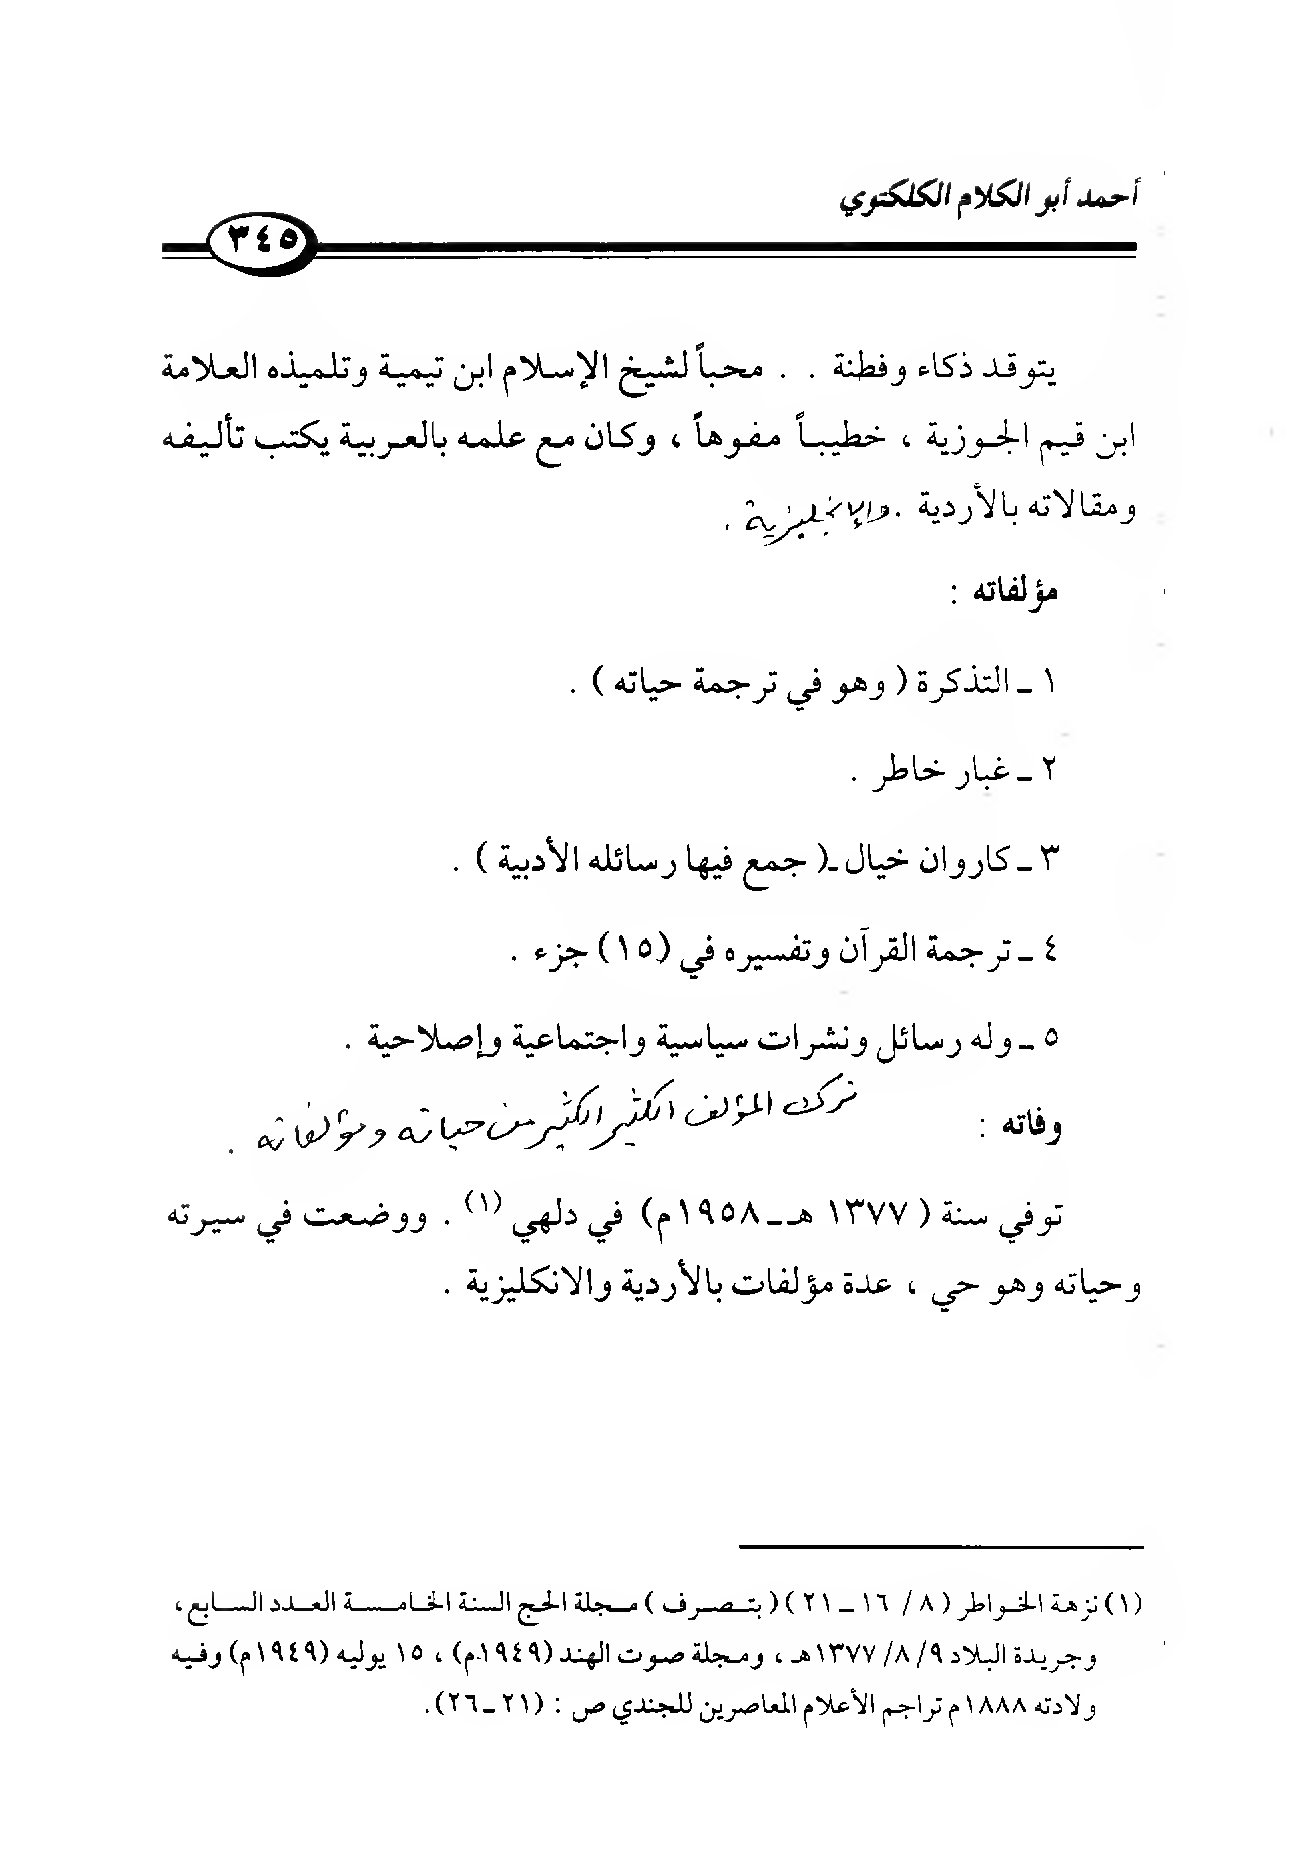 أحمد أبو الكلام الكلكتوي
٣٤٥
يتوقد ذكاء وفطنة . . محباً لشيخ الإسلام ابن تيمية وتلميذه العلامة
ابن قيم الجوزية ، خطيباً مفوهاً ، وكان مع علمه بالعربية يكتب تأليفه
ومقالاته بالأردية . والإنجليزية .
مؤلفاته :
١ ـ التذكرة ( وهو في ترجمة حياته ) .
٢ ـ غبار خاطر .
٣ ـ كاروان خيال ـ( جمع فيها رسائله الأدبية ) .
٤ ـ ترجمة القرآن وتفسيره في (١٥) جزء .
٥ ـ وله رسائل ونشرات سياسية واجتماعية وإصلاحية .
ترك المؤلف الكثير الكثير من حياته ومؤلفاته .
وفاته :
توفي سنة ( ١٣٧٧ هـ ـ ١٩٥٨م) في دلهي (١) . ووضعت في سيرته
وحياته وهو حي ، عدة مؤلفات بالأردية والانكليزية .
(١) نزهة الخواطر ( ٨ / ١٦ ـ ٢١ ) ( بتصرف ) مجلة الحج السنة الخامسة العدد السابع ،
وجريدة البلاد ٩/ ٨/ ١٣٧٧هـ ، ومجلة صوت الهند (١٩٤٩م) ، ١٥ يوليه (١٩٤٩م) وفيه
ولادته ١٨٨٨م تراجم الأعلام المعاصرين للجندي ص : (٢١ ـ ٢٦).